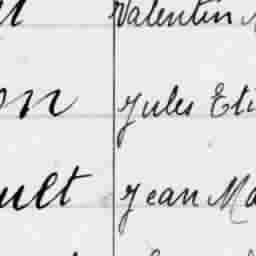 Valentin
on Jules Eti
ult Jean Ma